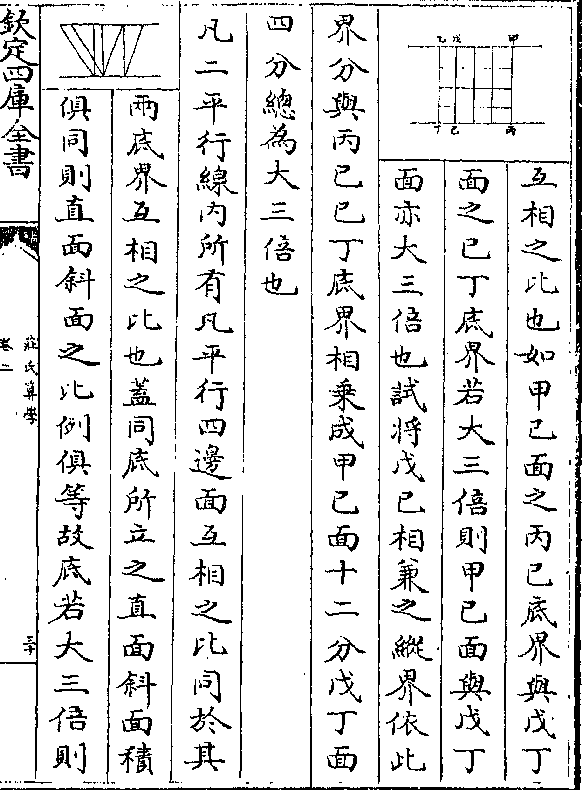 互相之比也如甲己面之丙己底界與戊丁
面之己丁底界若大三倍則甲己面與戊丁
面亦大三倍也試將戊己相兼之縱界依此
界分與丙己己丁底界相乗成甲己面十二分戊丁面
四分總為大三倍也
凡二平行線内所有凡平行四邊面互相之比同於其
兩底界互相之比也蓋同底所立之直面斜面積
俱同則直面斜面之比例俱等故底若大三倍則
乙戊 甲
丁己 丙
欽定四庫全書
莊氏算學
卷二